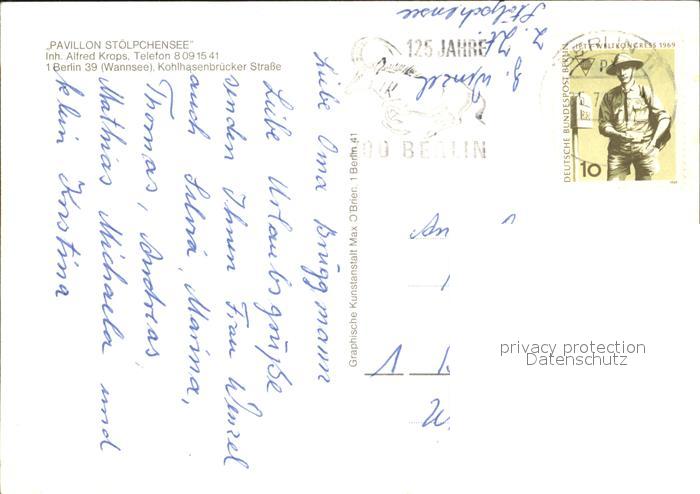 „PAVILLON STÖLPCHENSEE"
Inh. Alfred Krops, Telefon 8 09 15 41
1 Berlin 39 (Wannsee), Kohlhasenbrücker Straße
Liebe Oma Brüggmann
Liebe Urlaubsgrüße
senden Ihnen Frau Wenzel
auch Silvia, Marina,
Thomas, Andreas,
Mathias Michaela und
klein Kristina
Graphische Kunstanstalt Max O'Brien, 1 Berlin 41
g. Wenzel
z. Zt.
Stölpchensee
125 JAHRE
BERLIN
BERLIN
IPTT WELTKONGRESS 1969
DEUTSCHE BUNDESPOST BERLIN
10
An
1
privacy protection
Datenschutz